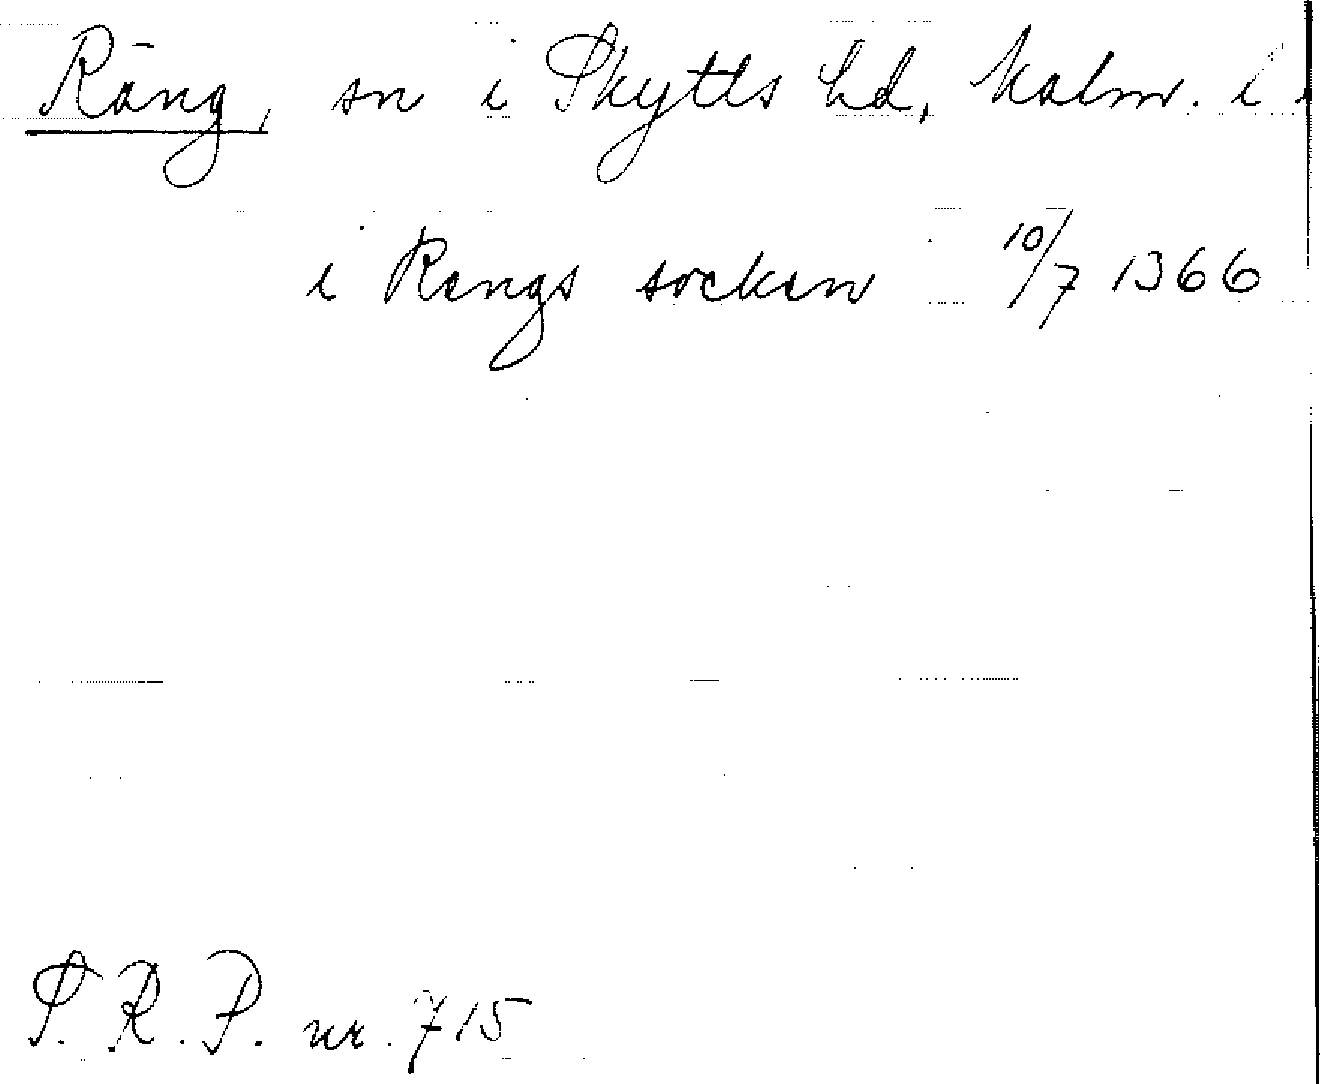 Räng, sn i Skytts hd, Malm. l
i Rengs sockan 10/7 1366
S.R.P. nr. 715